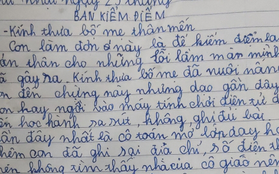 ngày 25 tháng
BẢN KIỂM ĐIỂM
- Kính thưa bố mẹ thân mến
Con làm đơn này là để kiểm điểm
thân cho những lỗi lầm mà mình
đã gây ra. Kính thưa bố mẹ đã nuôi nấng
đến chừng này nhưng dạo gần đây
con hay ngồi vào máy tính chơi điện tử
học hành sa sút, không ghi đủ bài
gần đây nhất là cô toán mở lớp dạy
con đã ghi sai địa chỉ, số điện
không tìm thấy nhà của cô giáo nên